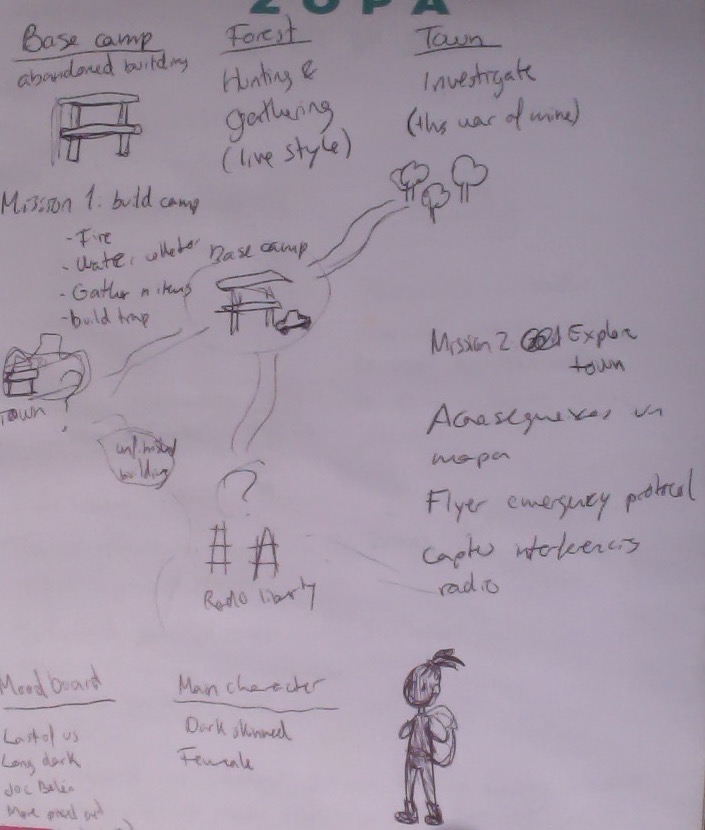 ZOPA
Base camp
abandoned building
Forest
Hunting &
gathering
(live style)
Town
Investigate
(this war of mine)
Mission 1: build camp
- Fire
- Water
- Gather
- build trap
Base camp
Town
?
unfinished
building
?
Radio liberty
Mission 2 Explore
town
un
mapa
Flyer emergency protocol
radio
Mood board
Last of us
Long dark
Main character
Dark skinned
Female